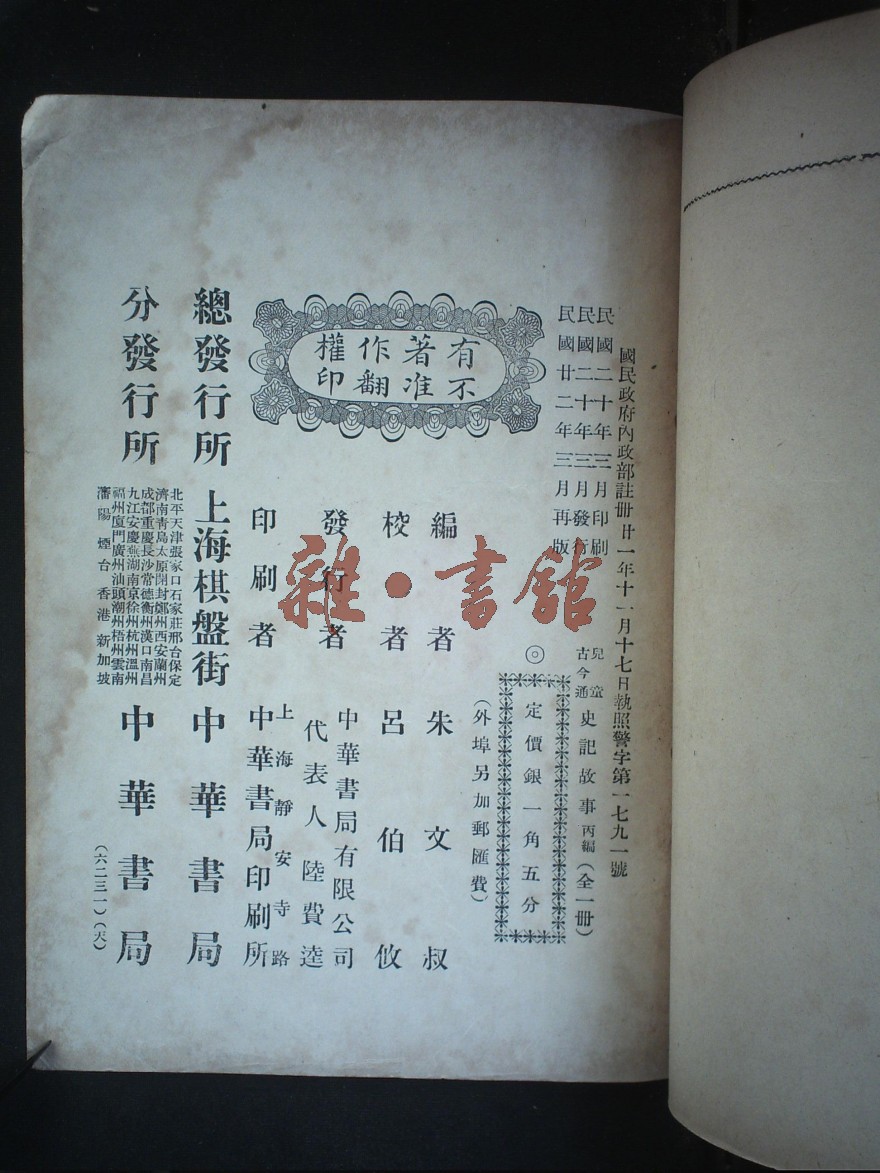 國民政府內政部註册廿一年十一月十七日執照警字第一七九一號
民國二十年三月印刷
民國二十年三月發行
民國廿二年三月再版
兒童
古今通
史記故事丙編(全一册)
◎
定價銀一角五分
(外埠另加郵匯費)
有著作權
不准翻印
編者朱文叔
校者呂伯攸
發行者
中華書局有限公司
代表人陸費逵
印刷者
上海靜安寺路
中華書局印刷所
總發行所 上海棋盤街 中華書局
分發行所
北平天津張家口石家莊邢台保定
濟南青島太原開封鄭州西安蘭州
成都重慶長沙常德衡州漢口南昌
九江安慶蕪湖南京徐州杭州溫州
福州廈門廣州汕頭潮州梧州雲南
瀋陽煙台香港新加坡
中華書局
(六二三一)(天)
雜·書館